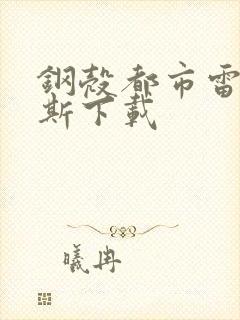 鋼殼都市雷
斯下載
曦冉